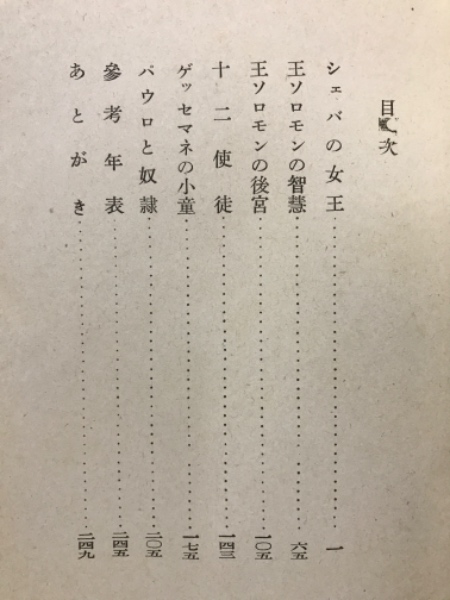 目次
シェバの女王……一
王ソロモンの智慧……六五
王ソロモンの後宮……一〇五
十二使徒……一四三
ゲッセマネの小童……一七五
パウロと奴隷……二〇五
參考年表……二四五
あとがき……二四九